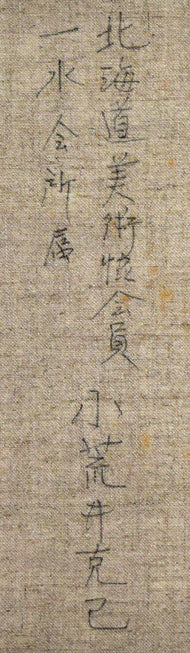 北海道美術協会員 小荒井克己
一水会所属